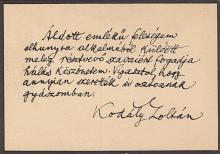 Áldott emlékű feleségem
elhunyta alkalmából küldött
meleg részvevő szavaiért fogadja
hálás köszönetem. Vigasztal, hogy
annyian szerették és osztoznak
gyászomban.
Kodály Zoltán